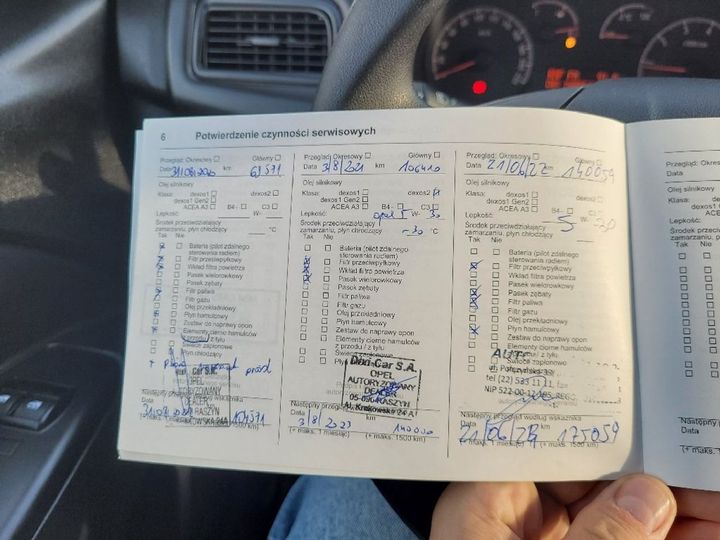 6 Potwierdzenie czynności serwisowych
Przegląd: Okresowy Główny
Data 31/08/2020 km 69571
Olej silnikowy
Klasa: dexos1 dexos2
dexos1 Gen2
ACEA A3 B4 - C3
Lepkość: W-
Środek przeciwdziałający
zamarzaniu, płyn chłodzący °C
Tak Nie
Bateria (pilot zdalnego
sterowania radiem)
Filtr przeciwpyłkowy
Wkład filtra powietrza
Pasek wielorowkowy
Pasek zębaty
Filtr paliwa
Filtr gazu
Olej przekładniowy
Płyn hamulcowy
Zestaw do naprawy opon
Elementy cierne hamulców
z przodu / z tyłu
Świece zapłonowe
Płyn chłodzący
Car S.A.
OPEL
DEALER
RASZYN
Następny
Data 31/08/2021 104571
(+ maks. 1 miesiąc) km)
Przegląd: Okresowy Główny
Data 3/8/2021 km 106410
Olej silnikowy
Klasa: dexos1 dexos2
dexos1 Gen2
ACEA A3 B4 - C3
Lepkość: opel 5 W- 30
Środek przeciwdziałający
zamarzaniu, płyn chłodzący -30 °C
Tak Nie
Bateria (pilot zdalnego
sterowania radiem)
Filtr przeciwpyłkowy
Wkład filtra powietrza
Pasek wielorowkowy
Pasek zębaty
Filtr paliwa
Filtr gazu
Olej przekładniowy
Płyn hamulcowy
Zestaw do naprawy opon
Elementy cierne hamulców
z przodu / z tyłu
Świece zapłonowe
Don-Car S.A.
OPEL
AUTORYZOWANY
DEALER
05-090 RASZYN
Al. Krakowska 24 A
Następny przegląd
Data 3/8/2022 140000
(+ maks. 1 miesiąc)
Przegląd: Okresowy Główny
Data 21/06/22 km 140059
Olej silnikowy
Klasa: dexos1 dexos2
dexos1 Gen2
ACEA A3 B4 - C3
Lepkość: 5 W- 30
Środek przeciwdziałający
zamarzaniu, płyn chłodzący
Tak Nie
Bateria (pilot zdalnego
sterowania radiem)
Filtr przeciwpyłkowy
Wkład filtra powietrza
Pasek wielorowkowy
Pasek zębaty
Filtr paliwa
Filtr gazu
Olej przekładniowy
Płyn hamulcowy
Zestaw do naprawy opon
Elementy cierne hamulców
z przodu / z tyłu
Świece zapłonowe
Płyn chłodzący
tel (22)
NIP
Następny przegląd według wskaźnika
Data km
21/06/23 175059
(+ maks. 1 miesiąc) (+ maks. 1500 km)
Przegląd: Okresowy
Data
Olej silnikowy
Klasa: dexos1
dexos1 Gen2
ACEA A3
Lepkość:
Środek przeciwdziałający
zamarzaniu, płyn chłodzący
Tak Nie
Następny
Data
(+ maks.